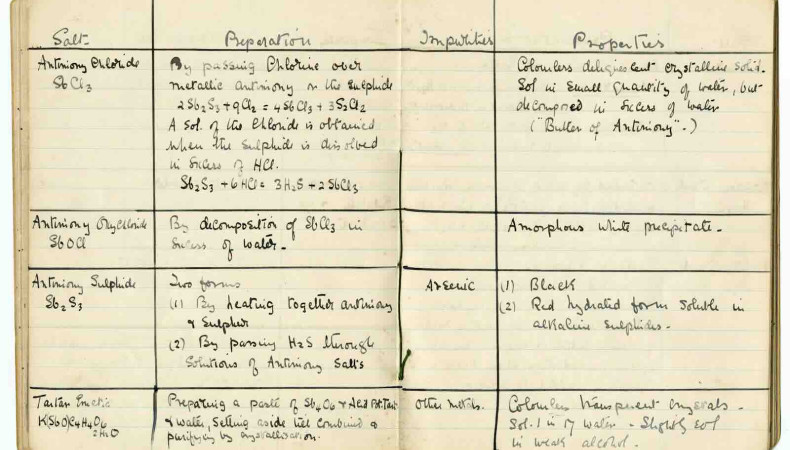 Salt
Preparation
Impurities
Properties
Antimony Chloride
SbCl3
By passing Chlorine over
metallic antimony or the Sulphide
2Sb2S3 + 9Cl2 = 4SbCl3 + 3S2Cl2
A Sol. of the Chloride is obtained
when the Sulphide is dissolved
in Excess of HCl.
Sb2S3 + 6HCl = 3H2S + 2SbCl3
Colourless deliquescent crystalline solid.
Sol in Small quantity of water, but
decomposed in Excess of water
("Butter of Antimony".)
Antimony Oxychloride
SbOCl
By decomposition of SbCl3 in
Excess of water.
Amorphous white precipitate.
Antimony Sulphide
Sb2S3
Two forms
(1) By heating together antimony
& Sulphur
(2) By passing H2S through
Solutions of Antimony Salts
Arsenic
(1) Black
(2) Red hydrated form soluble in
alkaline Sulphides.
Tartar Emetic
K(SbO)C4H4O6
Preparing a paste of Sb4O6 & Acid Pot. Tart
& water, Setting aside till combined &
purifying by crystallisation.
Other metals.
Colourless transparent crystals.
Sol. 1 in 17 water - Slightly sol
in weak alcohol.